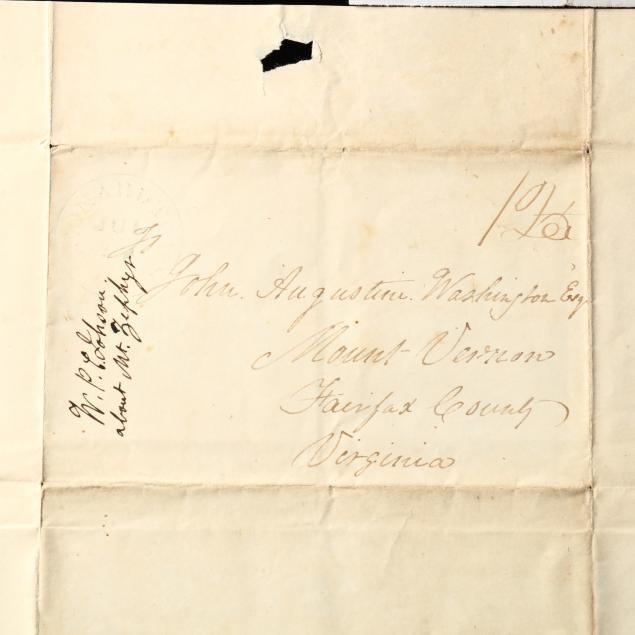 To
John. Augustine. Washington Esq
Mount Vernon
Fairfax County
Virginia
about Mt. Zephyr